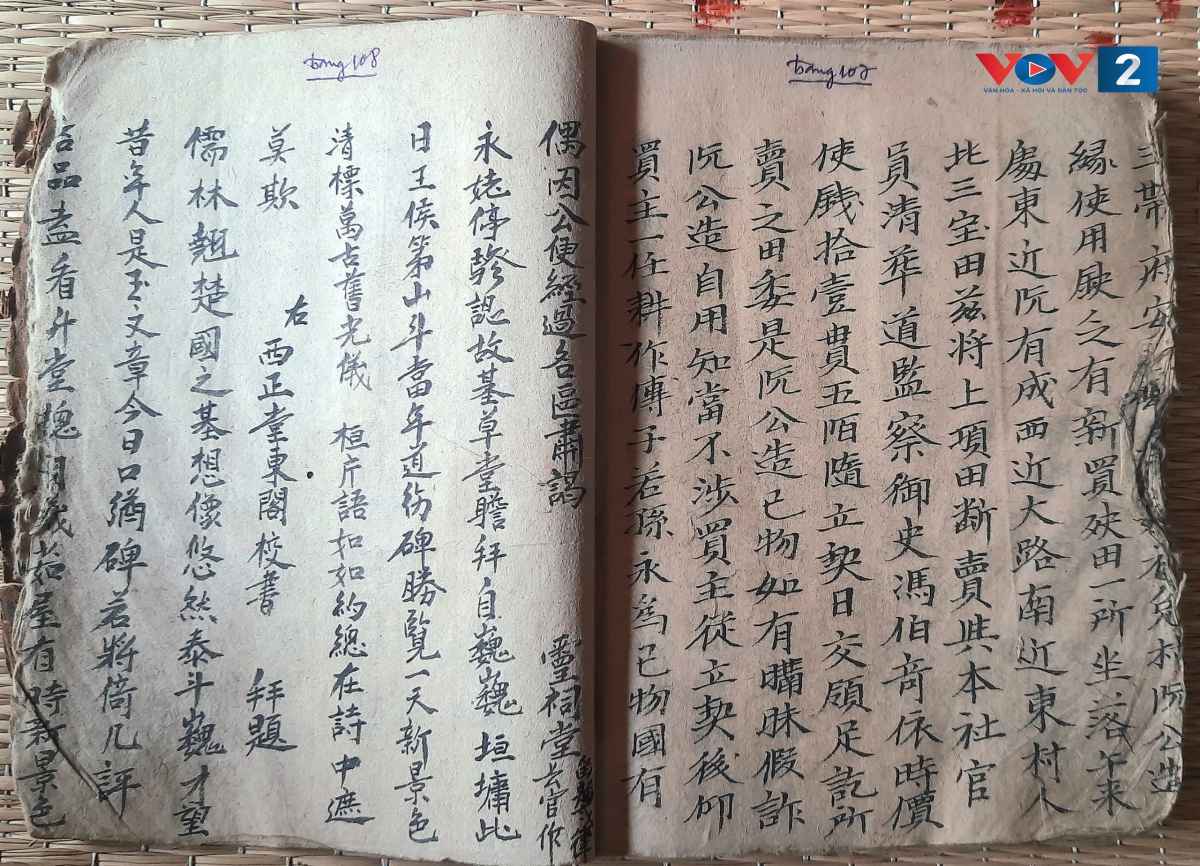 trang 107
三帶府安兌村阮公造
緣使用缺乏有新買殃田一所坐落午來
處東近阮有成西近大路南近東村人
北三室田茲将上項田断賣與本社官
員清華道監察御史馮伯竒依時價
使銭拾壹貫五陌隨立契日交領足訖所
賣之田委是阮公造已物如有矓昧假詐
阮公造自用知當不渉買主從立契後仰
買主一任耕作傳子若孫永爲已物國有
trang 108
偶因公便經過名區肅謁 霊祠堂
左官作
永姥停驂認故基草堂瞻拜自巍巍垣墉此
日王侯第山斗當年道彷碑勝覧一天新景色
清標萬古舊光儀 桓片語如如約總在詩中遮
莫欺
右 西正堂東閣校書 拜題
儒林翹楚國之基想像悠然泰斗巍才望
昔年人是玉文章今日口猶碑若将倚几評
品盍看升堂總有時新景色
VOV2
VĂN HÓA - XÃ HỘI VÀ DÂN TỘC